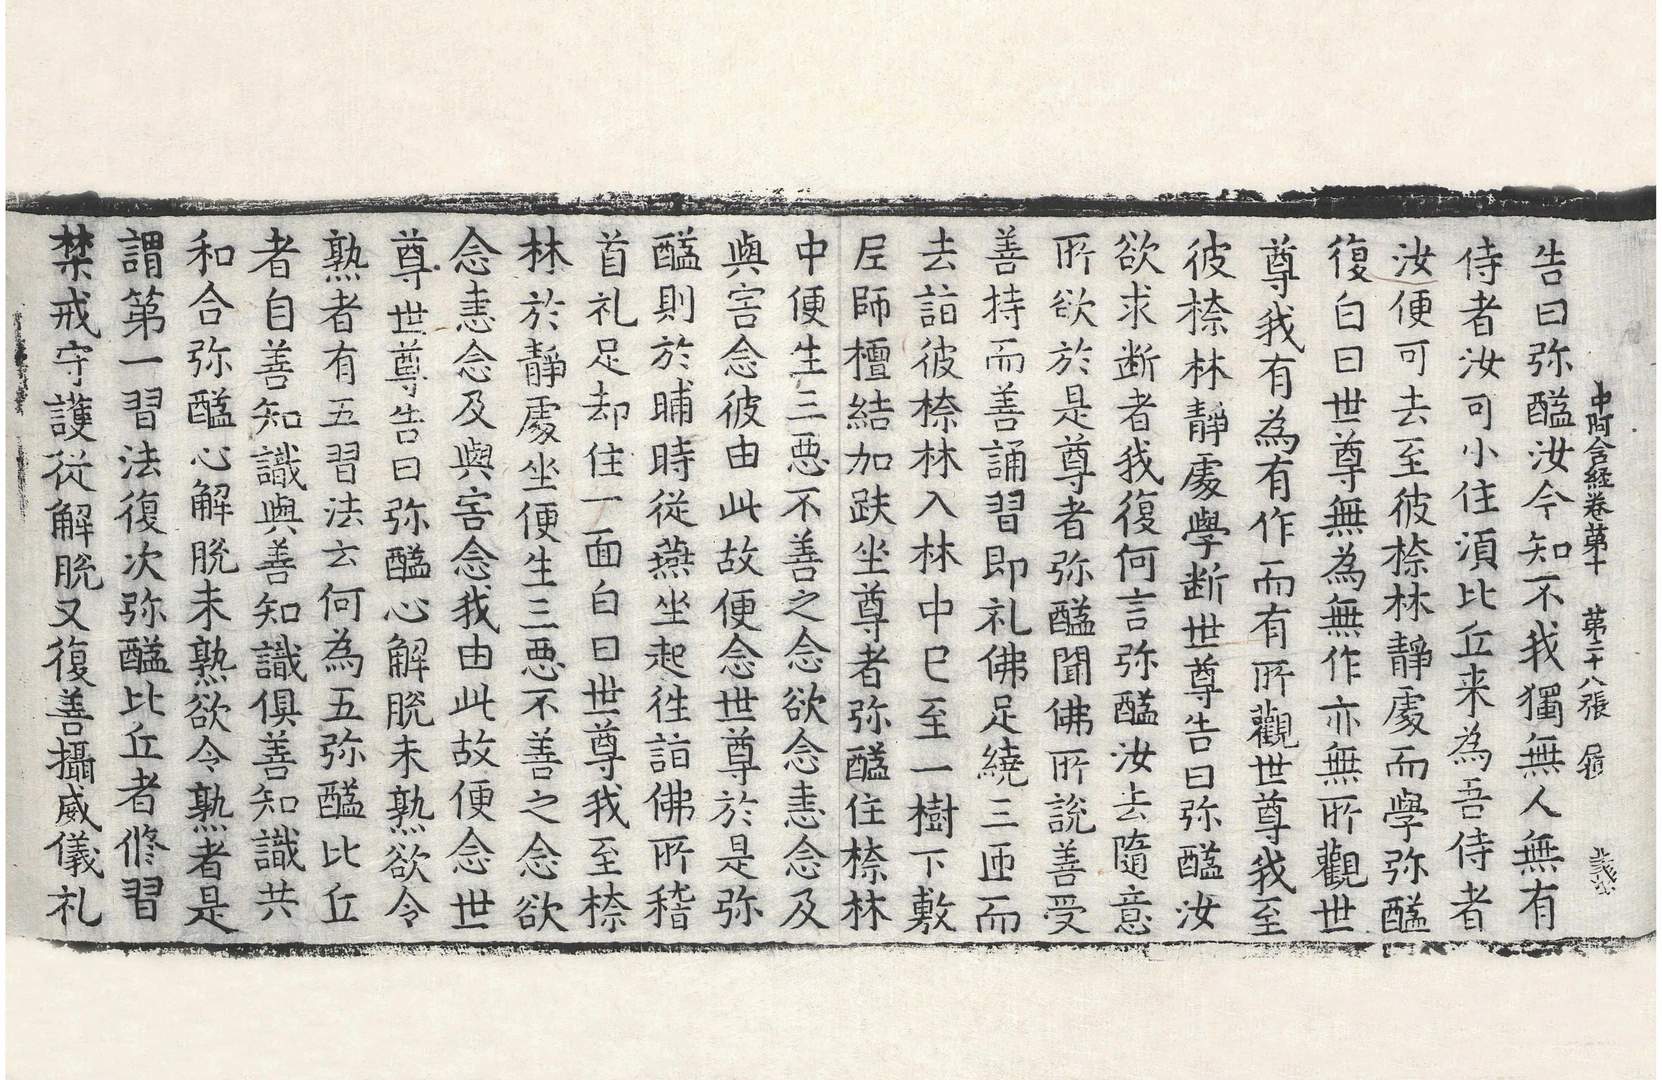 中阿含経卷第十　第二十八張　
告曰弥醯汝今知不我獨無人無有
侍者汝可小住湏比丘来為吾侍者
汝便可去至彼㮈林靜處而學弥醯
復白曰世尊無為無作亦無所觀世
尊我有為有作而有所觀世尊我至
彼㮈林靜處學断世尊告曰弥醯汝
欲求断者我復何言弥醯汝去隨意
所欲於是尊者弥醯聞佛所說善受
善持而善誦習即礼佛足繞三匝而
去詣彼㮈林入林中已至一樹下敷
尼師檀結加趺坐尊者弥醯住㮈林
中便生三惡不善之念欲念恚念及
與害念彼由此故便念世尊於是弥
醯則於晡時從燕坐起徃詣佛所稽
首礼足却住一面白曰世尊我至㮈
林於靜處坐便生三惡不善之念欲
念恚念及與害念我由此故便念世
尊世尊告曰弥醯心解脫未熟欲令
熟者有五習法云何為五弥醯比丘
者自善知識與善知識俱善知識共
和合弥醯心解脫未熟欲令熟者是
謂第一習法復次弥醯比丘者修習
禁戒守護從解脫又復善攝威儀礼